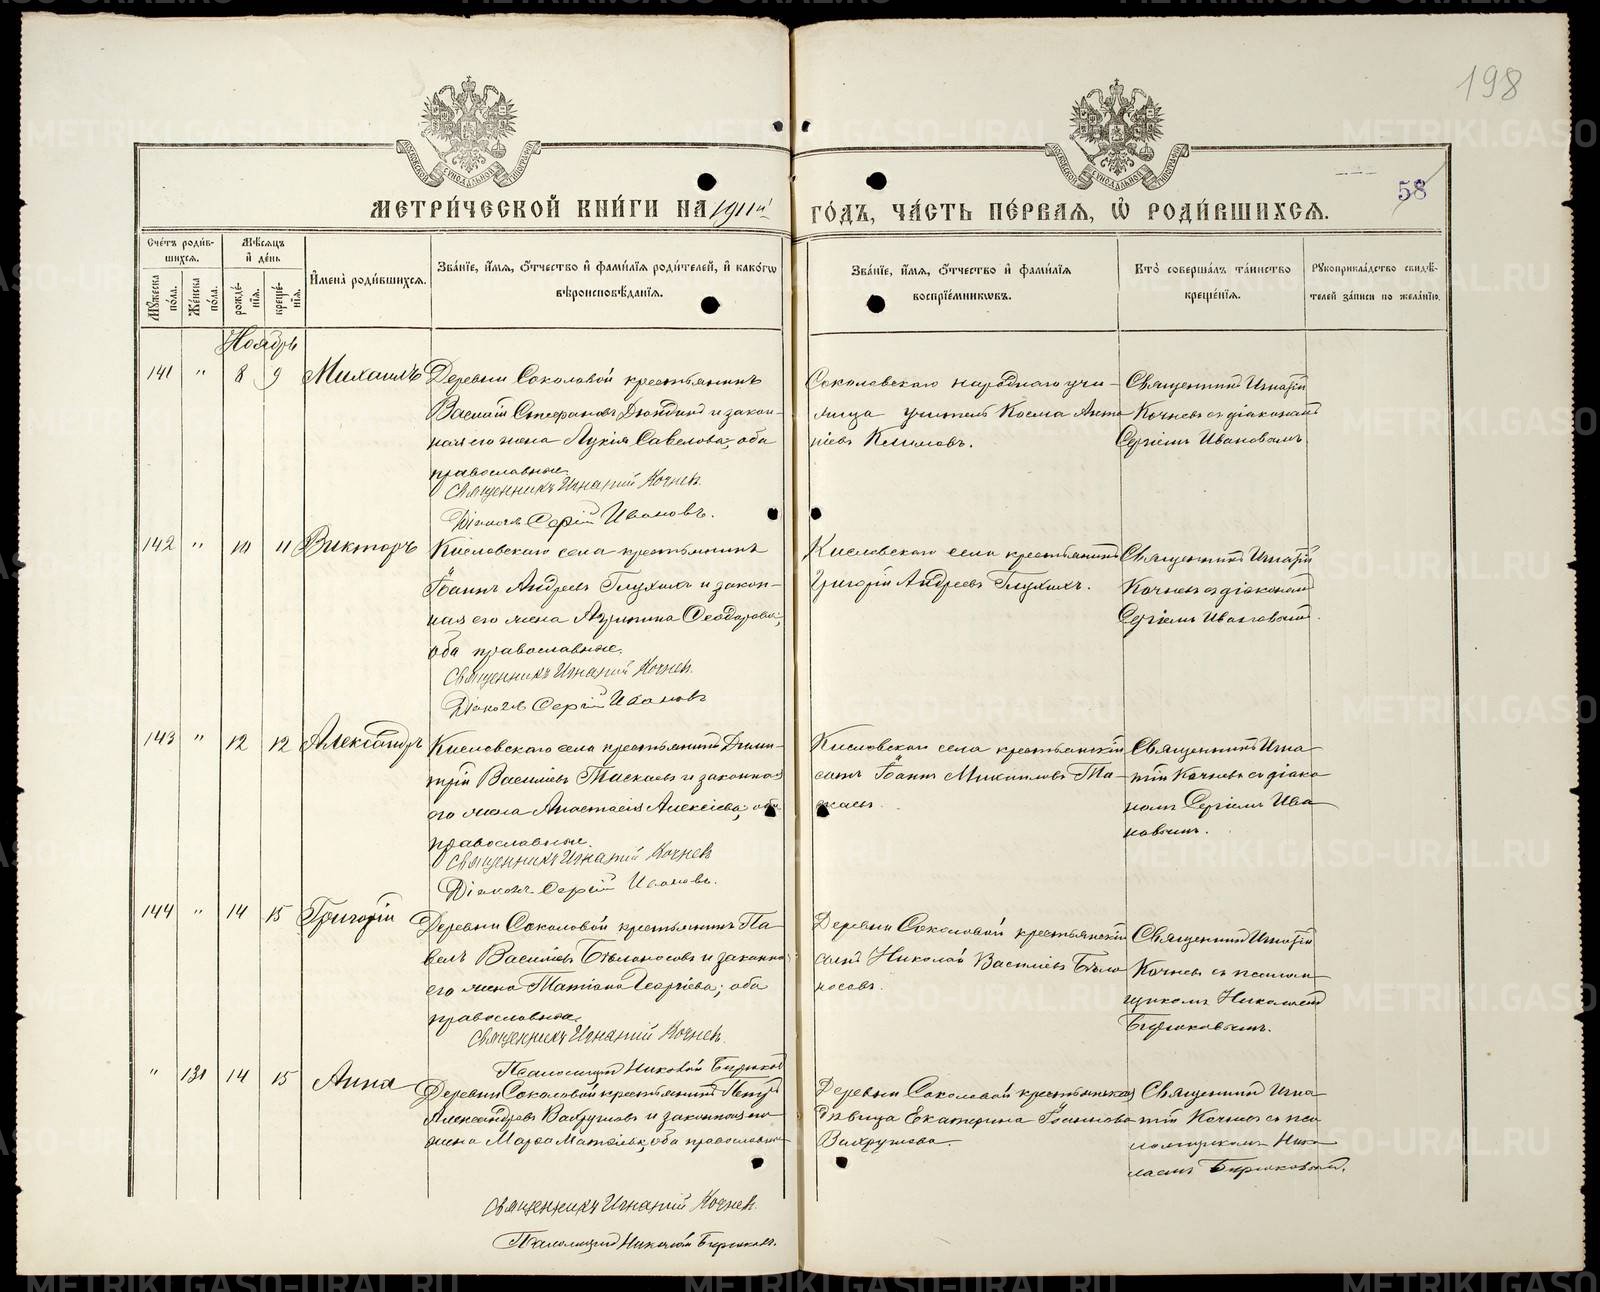 198
58
МЕТРИ́ЧЕСКОЙ КНИ́ГИ НА 1911й ГО́ДЪ, ЧА́СТЬ ПЕ́РВАЯ, Ѡ҆ РОДИ́ВШИХСЯ.
Сче́тъ роди́в-
шихся.
Мꙋ́жеска по́ла.
Же́нска по́ла.
Мѣ́сяцъ
и҆ де́нь
рожде́-
нїя.
креще́-
нїя.
И҆мена̀ роди́вшихся.
Зва́нїе, и҆́мя, ѻ҆́тчество и҆ фами́лїя роди́телей, и҆ како́гѡ
вѣроисповѣ́данїя.
Зва́нїе, и҆́мя, ѻ҆́тчество и҆ фами́лїя
воспрїе́мникѡвъ.
Кто̀ соверша́лъ та́инство
креще́нїя.
Рꙋкоприкла́дство свидѣ́-
телей за́писи по жела́нїю.
Ноябрь
141 " 8 9 Михаилъ
Деревни Соколовой крестьянинъ
Василій Стефановъ и закон-
ная его жена Лукія Савелова; оба
православные.
Священникъ Игнатій Кочневъ.
Діаконъ Сергій Ивановъ.
Соколовскаго народнаго учи-
лища учитель Косма
Климовъ.
Священникъ Игнатій
Кочневъ съ діакономъ
Сергіемъ Ивановымъ.
142 " 10 11 Викторъ
Кисловскаго села крестьянинъ
Іоаннъ Андреевъ Глухихъ и закон-
ная его жена Агрипина Ѳеодорова;
оба православные.
Священникъ Игнатій Кочневъ.
Діаконъ Сергій Ивановъ
Кисловскаго села крестьянинъ
Григорій Андреевъ Глухихъ.
Священникъ Игнатій
Кочневъ съ діакономъ
Сергіемъ Ивановымъ.
143 " 12 12 Александръ
Кисловскаго села крестьянинъ Дими-
трій Василіевъ Таскаевъ и законная
его жена Анастасія Алексіева; оба
православные.
Священникъ Игнатій Кочневъ
Діаконъ Сергій Ивановъ.
Кисловскаго села крестьянскій
сынъ Іоаннъ Михаиловъ Та-
скаевъ.
Священникъ Игна-
тій Кочневъ съ діако-
номъ Сергіемъ Ива-
новымъ.
144 " 14 15 Григорій
Деревни Соколовой крестьянинъ Па-
велъ Василіевъ Бѣлоносовъ и законная
его жена Татіана Георгіева; оба
православные.
Священникъ Игнатій Кочневъ.
Псаломщикъ Николай Бирюковъ
Деревни Соколовой крестьянскій
сынъ Николай Василіевъ Бѣло-
носовъ.
Священникъ Игнатій
Кочневъ съ псалом-
щикомъ Николаемъ
Бирюковымъ.
" 131 14 15 Анна
Деревни Соколовой крестьянинъ Петръ
Александровъ Вахрушевъ и законная его
жена Марѳа; оба православные
Священникъ Игнатій Кочневъ.
Псаломщикъ Николай Бирюковъ.
Деревни Соколовой крестьянская
дѣвица Екатерина Іоаннова
Вахрушева.
Священникъ Игна-
тій Кочневъ съ пса-
ломщикомъ Нико-
лаемъ Бирюковымъ.
METRIKI.GASO-URAL.RU